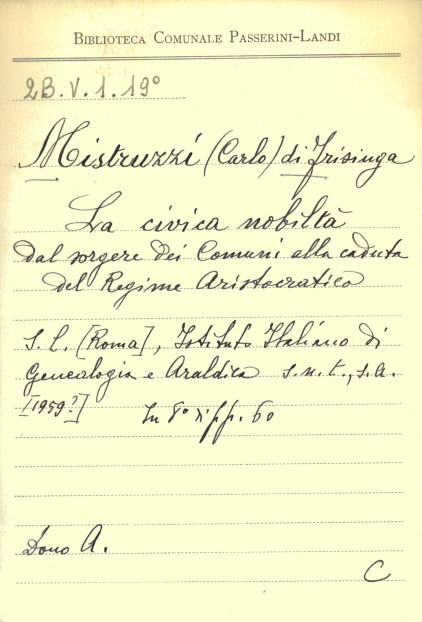 BIBLIOTECA COMUNALE PASSERINI-LANDI
2B.V.1.19°
Mistruzzi (Carlo) di Frisinga
La civica nobiltà
dal sorgere dei Comuni alla caduta
del Regime Aristocratico
S. l. [Roma], Istituto Italiano di
Genealogia e Araldica s.n.t., s.a.
[1959?] In 8° di pp. 60
Dono A.
C